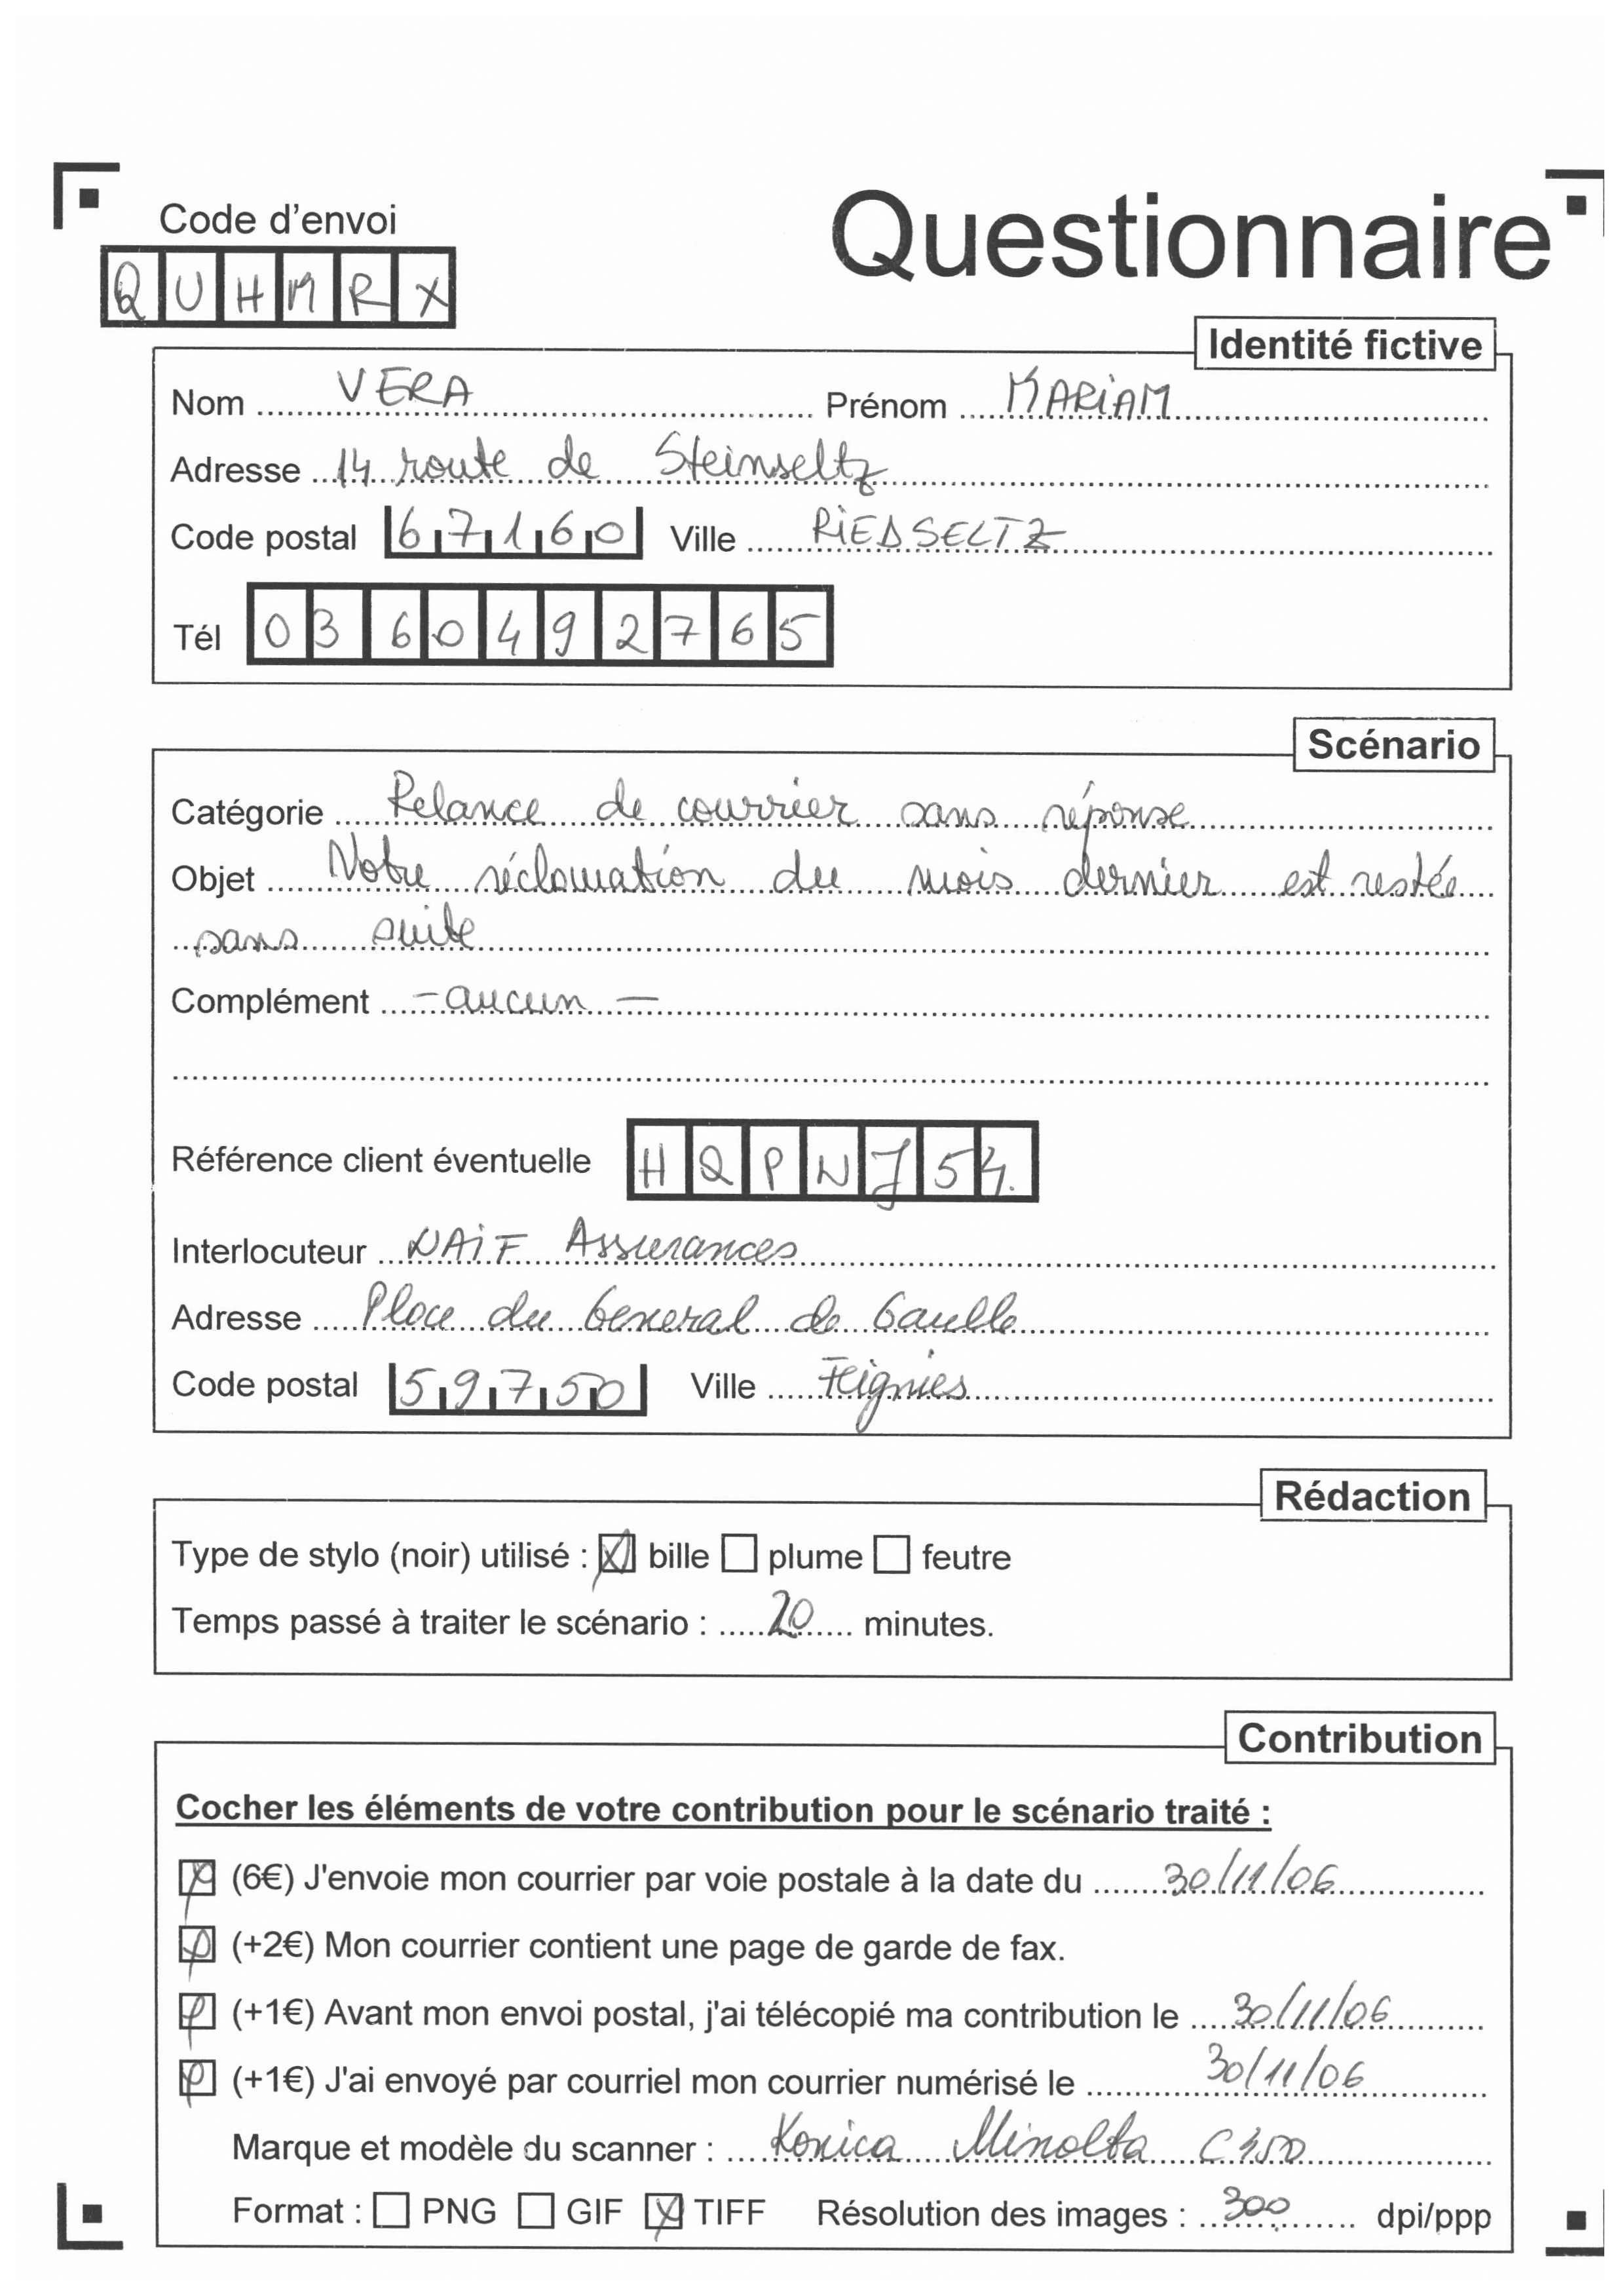 Questionnaire
Code d'envoi
QUHMRX
Identité fictive
Nom VERA Prénom MARIAM
Adresse 14 route de Steinseltz
Code postal 67160 Ville RIEDSELTZ
Tél 0360492765
Scénario
Catégorie Relance de courrier sans réponse
Objet Votre réclamation du mois dernier est restée
sans suite
Complément - aucun -
Référence client éventuelle HQPNJ54
Interlocuteur NAIF Assurances
Adresse Place du General de Gaulle
Code postal 59750 Ville Feignies
Rédaction
Type de stylo (noir) utilisé : bille plume feutre
Temps passé à traiter le scénario : 20 minutes.
Contribution
Cocher les éléments de votre contribution pour le scénario traité :
(6€) J'envoie mon courrier par voie postale à la date du 30/11/06
(+2€) Mon courrier contient une page de garde de fax.
(+1€) Avant mon envoi postal, j'ai télécopié ma contribution le 30/11/06
(+1€) J'ai envoyé par courriel mon courrier numérisé le 30/11/06
Marque et modèle du scanner : Konica Minolta
Format : PNG GIF TIFF Résolution des images : 300 dpi/ppp